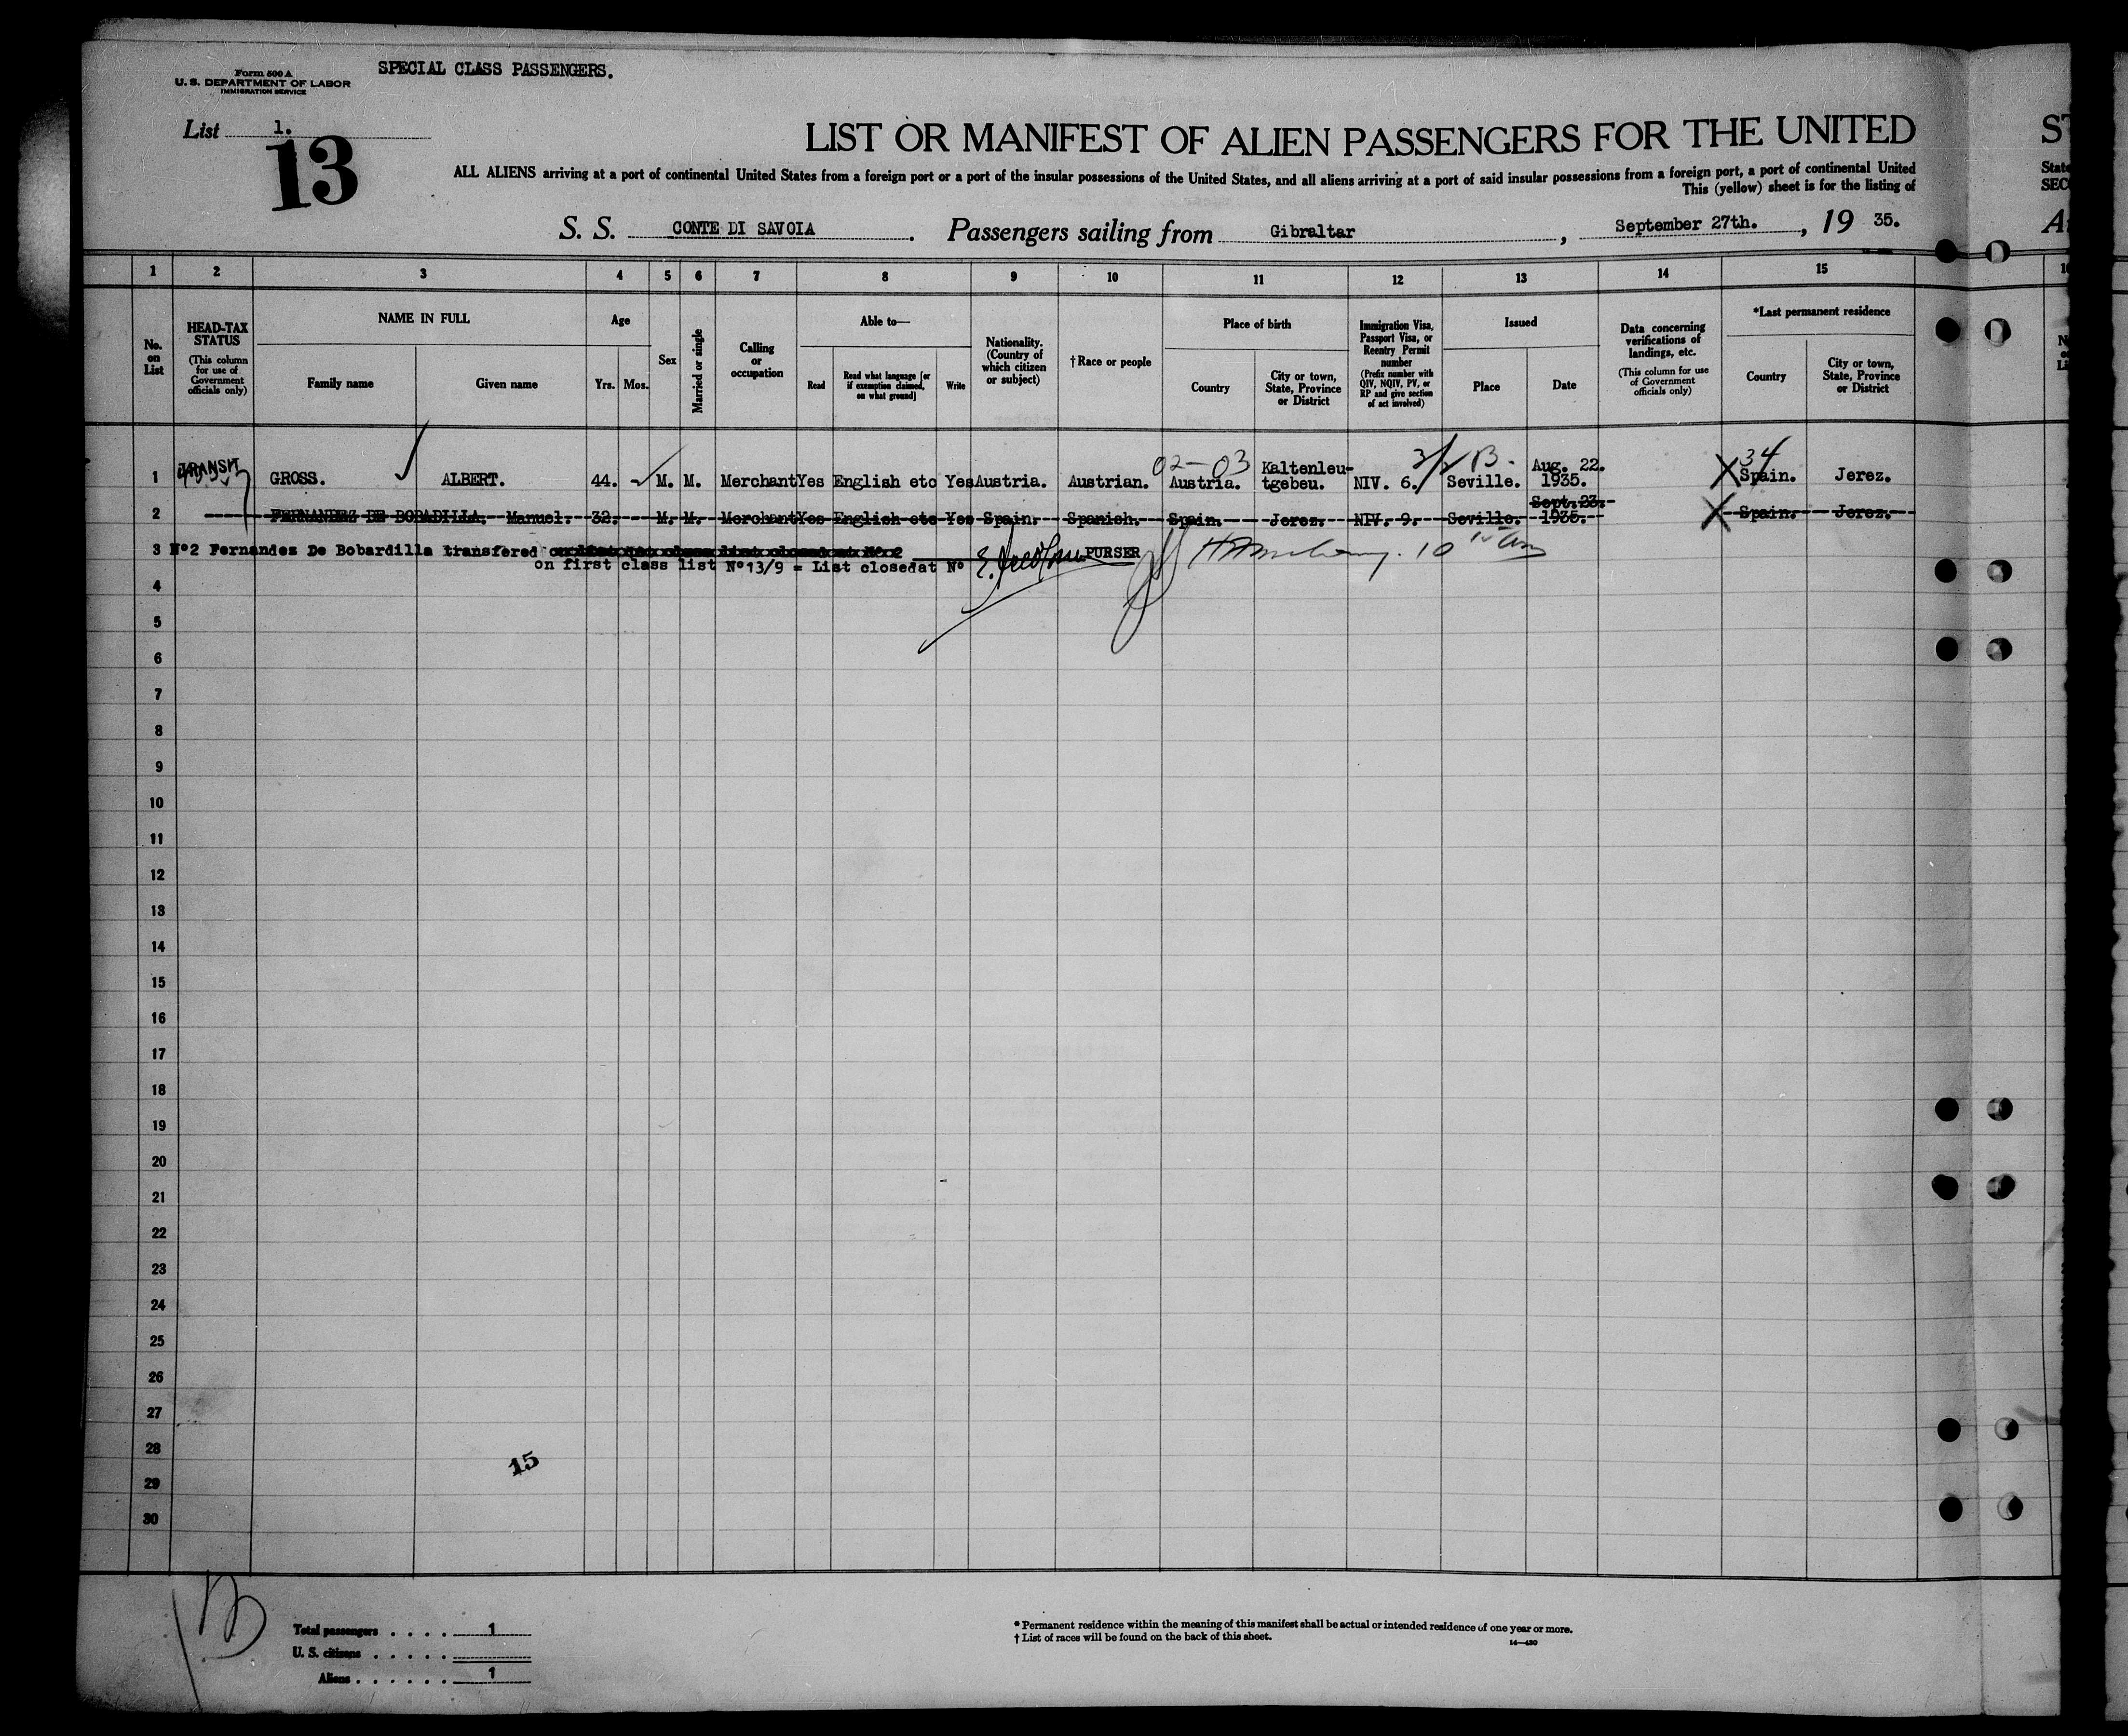 Form 500 A
U. S. DEPARTMENT OF LABOR
IMMIGRATION SERVICE
SPECIAL CLASS PASSENGERS.
List 1.
13
LIST OR MANIFEST OF ALIEN PASSENGERS FOR THE UNITED
ALL ALIENS arriving at a port of continental United States from a foreign port or a port of the insular possessions of the United States, and all aliens arriving at a port of said insular possessions from a foreign port, a port of continental United
This (yellow) sheet is for the listing of
S. S. CONTE DI SAVOIA. Passengers sailing from Gibraltar, September 27th., 19 35.
1 2 3 4 5 6 7 8 9 10 11 12 13 14 15
No. on List
HEAD-TAX STATUS (This column for use of Government officials only)
NAME IN FULL
Family name
Given name
Age
Yrs. Mos.
Sex
Married or single
Calling or occupation
Able to—
Read
Read what language [or if exemption claimed, on what ground]
Write
Nationality. (Country of which citizen or subject)
†Race or people
Place of birth
Country
City or town, State, Province or District
Immigration Visa, Passport Visa, or Reentry Permit number (Prefix number with QIV, NQIV, PV, or RP and give section of act involved)
Issued
Place
Date
Data concerning verifications of landings, etc. (This column for use of Government officials only)
*Last permanent residence
Country
City or town, State, Province or District
1 TRANSIT GROSS. ALBERT. 44. M. M. Merchant Yes English etc Yes Austria. Austrian. 02-03 Austria. Kaltenleu-tgebeu. NIV. 6. Seville. Aug. 22. 1935. X 34 Spain. Jerez.
2 FERNANDEZ DE BOBADILLA. Manuel. 32. M. M. Merchant Yes English etc Yes Spain. Spanish. Spain. Jerez. NIV. 9. Seville. Sept. 23. 1935. X Spain. Jerez.
3 Nº2 Fernandes De Bobardilla transfered PURSER
on first class list Nº13/9 = List closedat Nº
4
5
6
7
8
9
10
11
12
13
14
15
16
17
18
19
20
21
22
23
24
25
26
27
28
29
30
15
Total passengers . . . . 1
U. S. citizens . . . . .
Aliens . . . . . . 1
* Permanent residence within the meaning of this manifest shall be actual or intended residence of one year or more.
† List of races will be found on the back of this sheet.
14—430